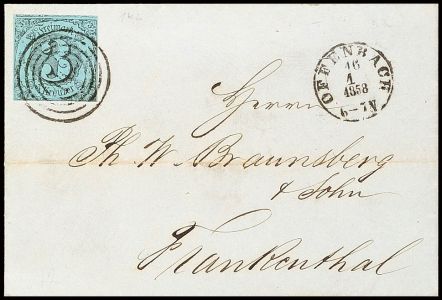 OFFENBACH
16
1
1858
6-7N
Herrn
Ph. W. Braunsberg
& Sohn
Frankenthal